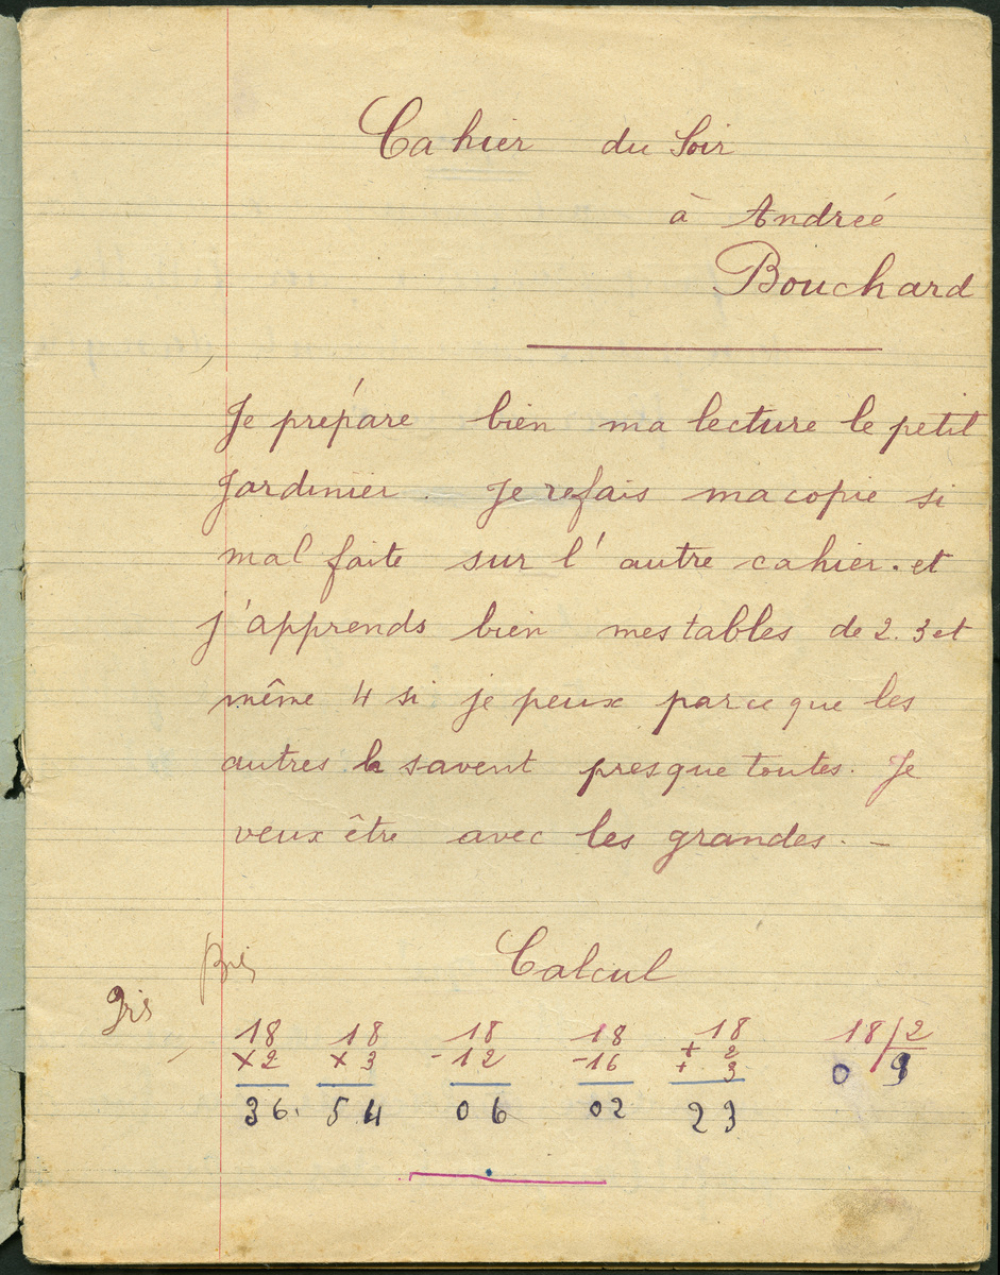 Cahier du Soir
à Andrée
Bouchard
Je prépare bien ma lecture le petit
Jardinier. Je refais ma copie si
mal faite sur l'autre cahier. et
j'apprends bien mes tables de 2. 3 et
même 4 si je peux parce que les
autres le savent presque toutes. Je
veux être avec les grandes. -
Calcul
Gris
18 18 18 18 18 18/2
×2 ×3 -12 -16 + 2 0 9
+ 3
36. 54 06 02 23